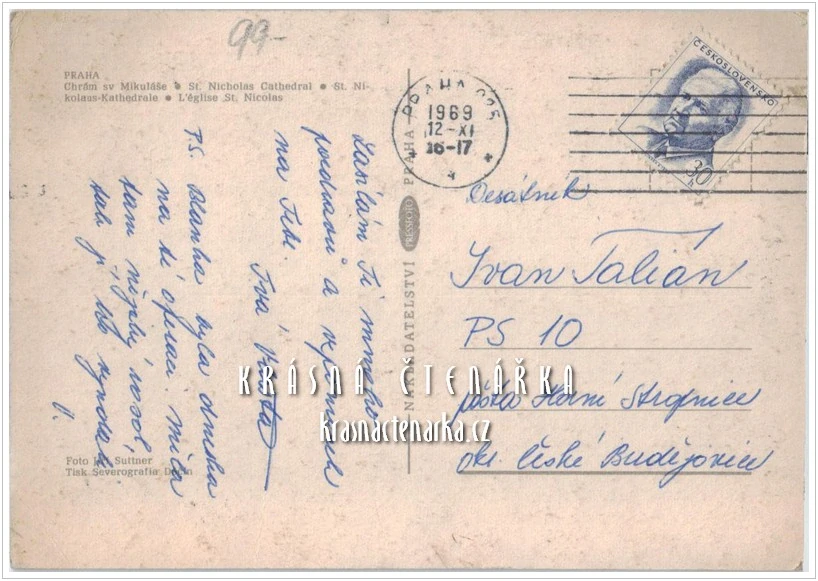 99-
PRAHA
Chrám sv Mikuláše • St. Nicholas Cathedral • St. Ni-
kolaus-Kathedrale • L'église St. Nicolas
PRAHA
1969
12-XI
16-17
4
ČESKOSLOVENSKO
30
h
Zasílám Ti mnoho
pozdravů a vzpomínek
na Tebe.
Tvá Vlasta
P.S. Blanka byla dneska
na té operaci. měla
tam nějaký
tak jí to
NAKLADATELSTVÍ PRESSFOTO PRAHA
Desátník
Ivan Talián
PS 10
pošta Horní Stropnice
okr. České Budějovice
KRÁSNÁ ČTENÁŘKA
krasnactenarka.cz
Foto Suttner
Tisk Severografia